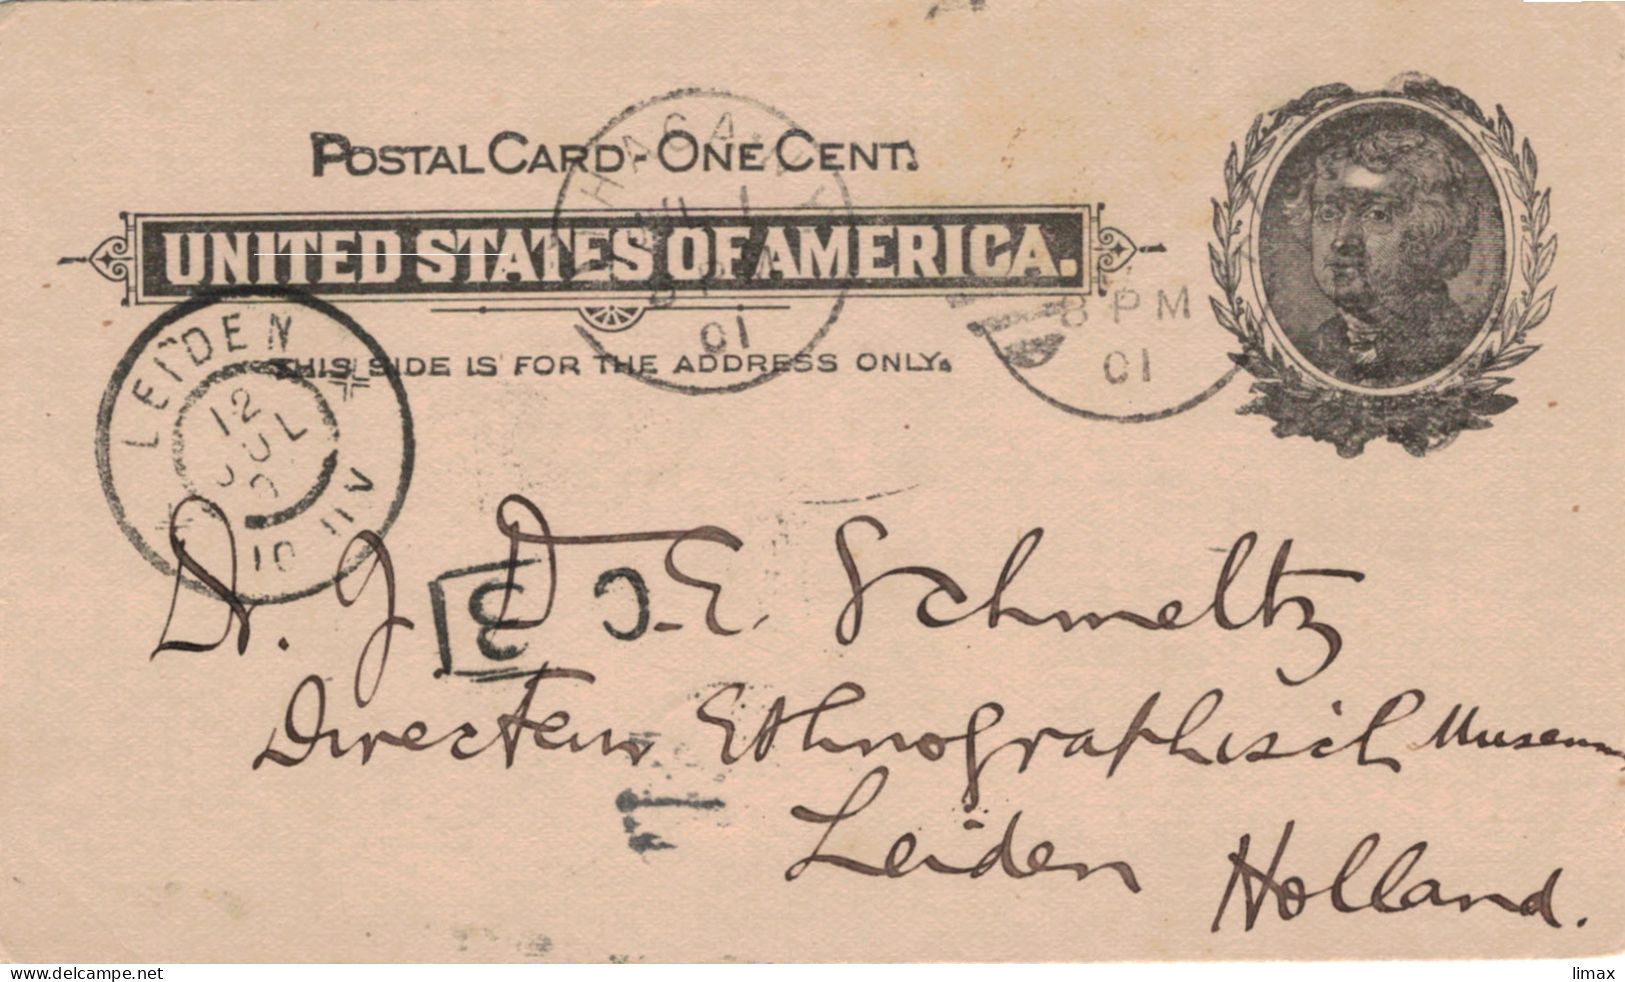 POSTAL CARD - ONE CENT.
UNITED STATES OF AMERICA.
THIS SIDE IS FOR THE ADDRESS ONLY.
8 PM
01
01
LEIDEN
12
JUL
10 11V
3
C
Dr. J. D. E. Schmeltz
Directeur Ethnographisch Museum
Leiden
Holland.
limax
www.delcampe.net